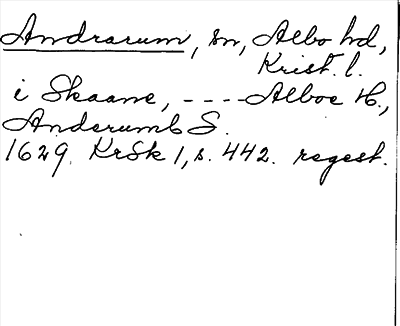 Andrarum, sn, Albo hd,
Krist. l.
i Skaane, ---- Alboe H.,
Anderumb S.
1629. KrSk 1, s. 442. regest.